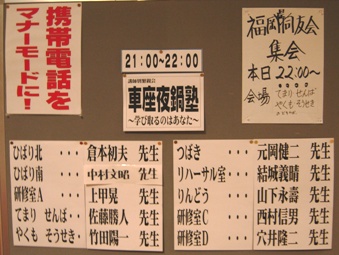 携帯電話を
マナーモードに!
21:00~22:00
車座夜鍋塾
~学び取るのはあなた~
福岡同友会
集会
本日22:00~
会場
てまり せんば
やくも そうせき
ひばり北 ・・・ 倉本初夫 先生
ひばり南 ・・・ 中村文昭 先生
研修室A ・・・ 上甲晃 先生
てまり せんば・・ 佐藤勝人 先生
やくも そうせき・ 竹田陽一 先生
つばき ・・・ 元岡健二 先生
リハーサル室 ・・・ 結城義晴 先生
りんどう ・・・ 山下永壽 先生
研修室C ・・・ 西村信男 先生
研修室D ・・・ 穴井隆二 先生